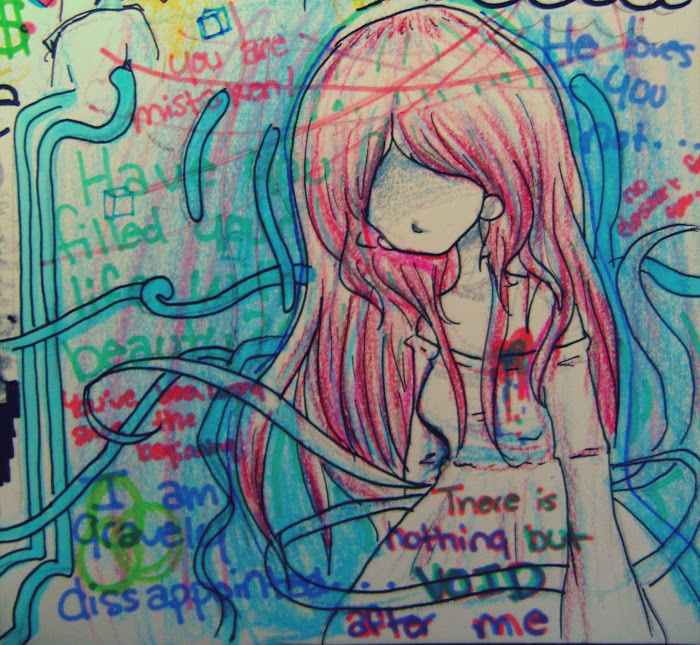 you are
mistaken!
He loves
you
not...
Have you
filled your
life with
beauty?
no
doesn't
You've
the
I am
gravely
dissappointed....
There is
nothing but
VOID
after me